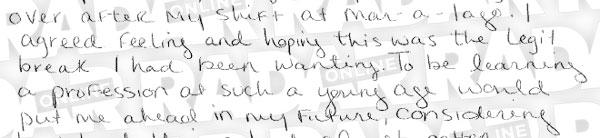 over after my shift at Mar-a-lago. I
agreed feeling and hoping this was the legit
break I had been wanting. To be learning
a profession at such a young age would
put me ahead in my future, considering